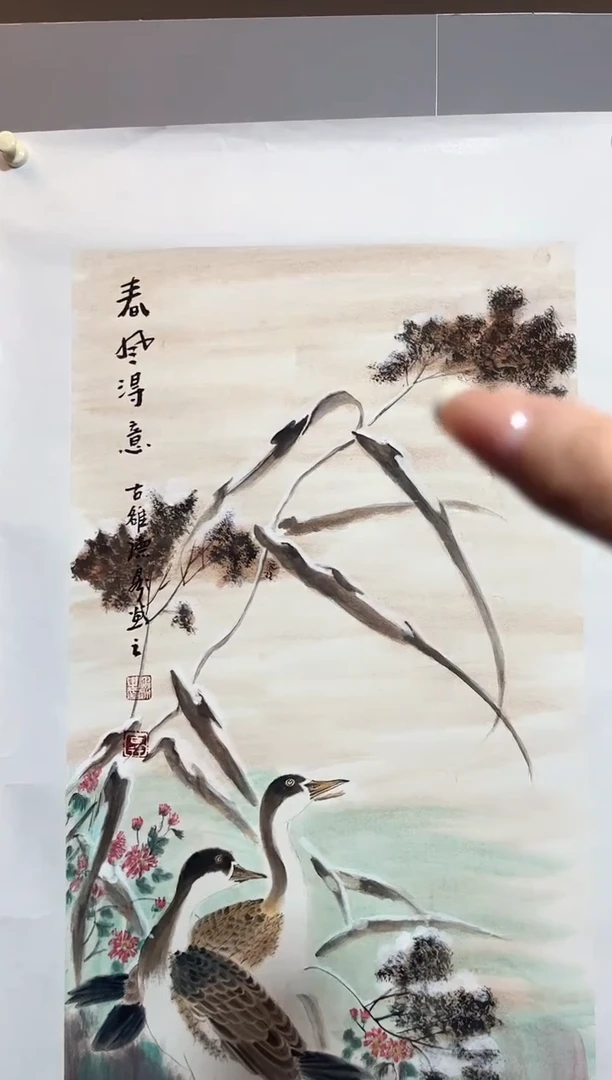 春风得意
古雒德彰画之